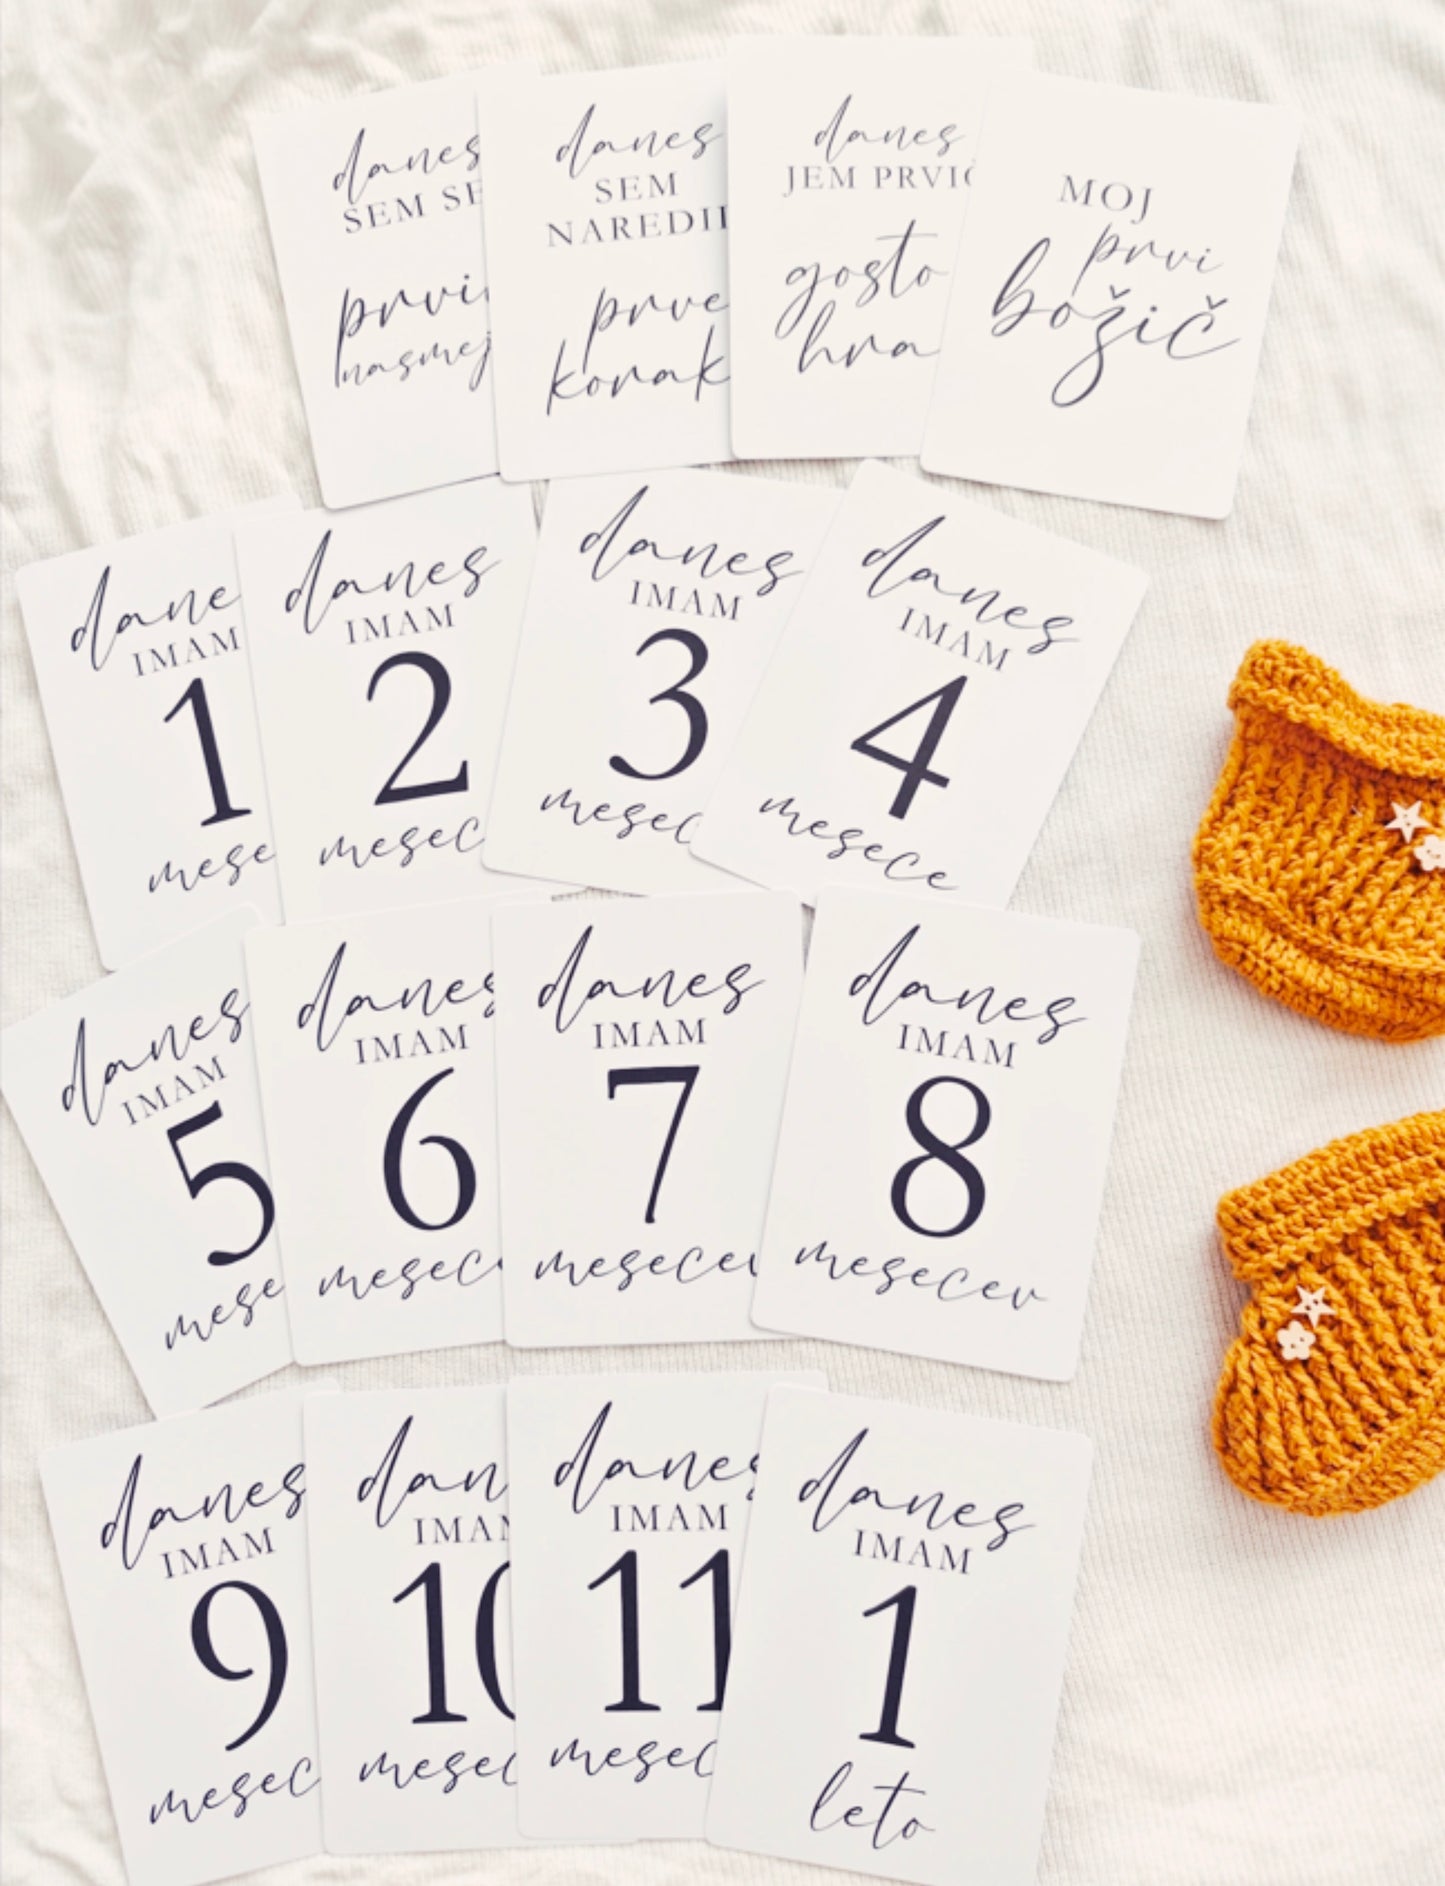 danes
SEM SE
prvi
nasmej
danes
SEM
NAREDIL
prve
korak
danes
JEM PRVIČ
gosto
hra
MOJ
prvi
božič
dane
IMAM
1
mese
danes
IMAM
2
mesec
danes
IMAM
3
mesec
danes
IMAM
4
mesece
danes
IMAM
5
mese
danes
IMAM
6
mesec
danes
IMAM
7
mesecev
danes
IMAM
8
mesecev
danes
IMAM
9
mesec
dan
IMAM
10
mesec
danes
IMAM
11
mesec
danes
IMAM
1
leto